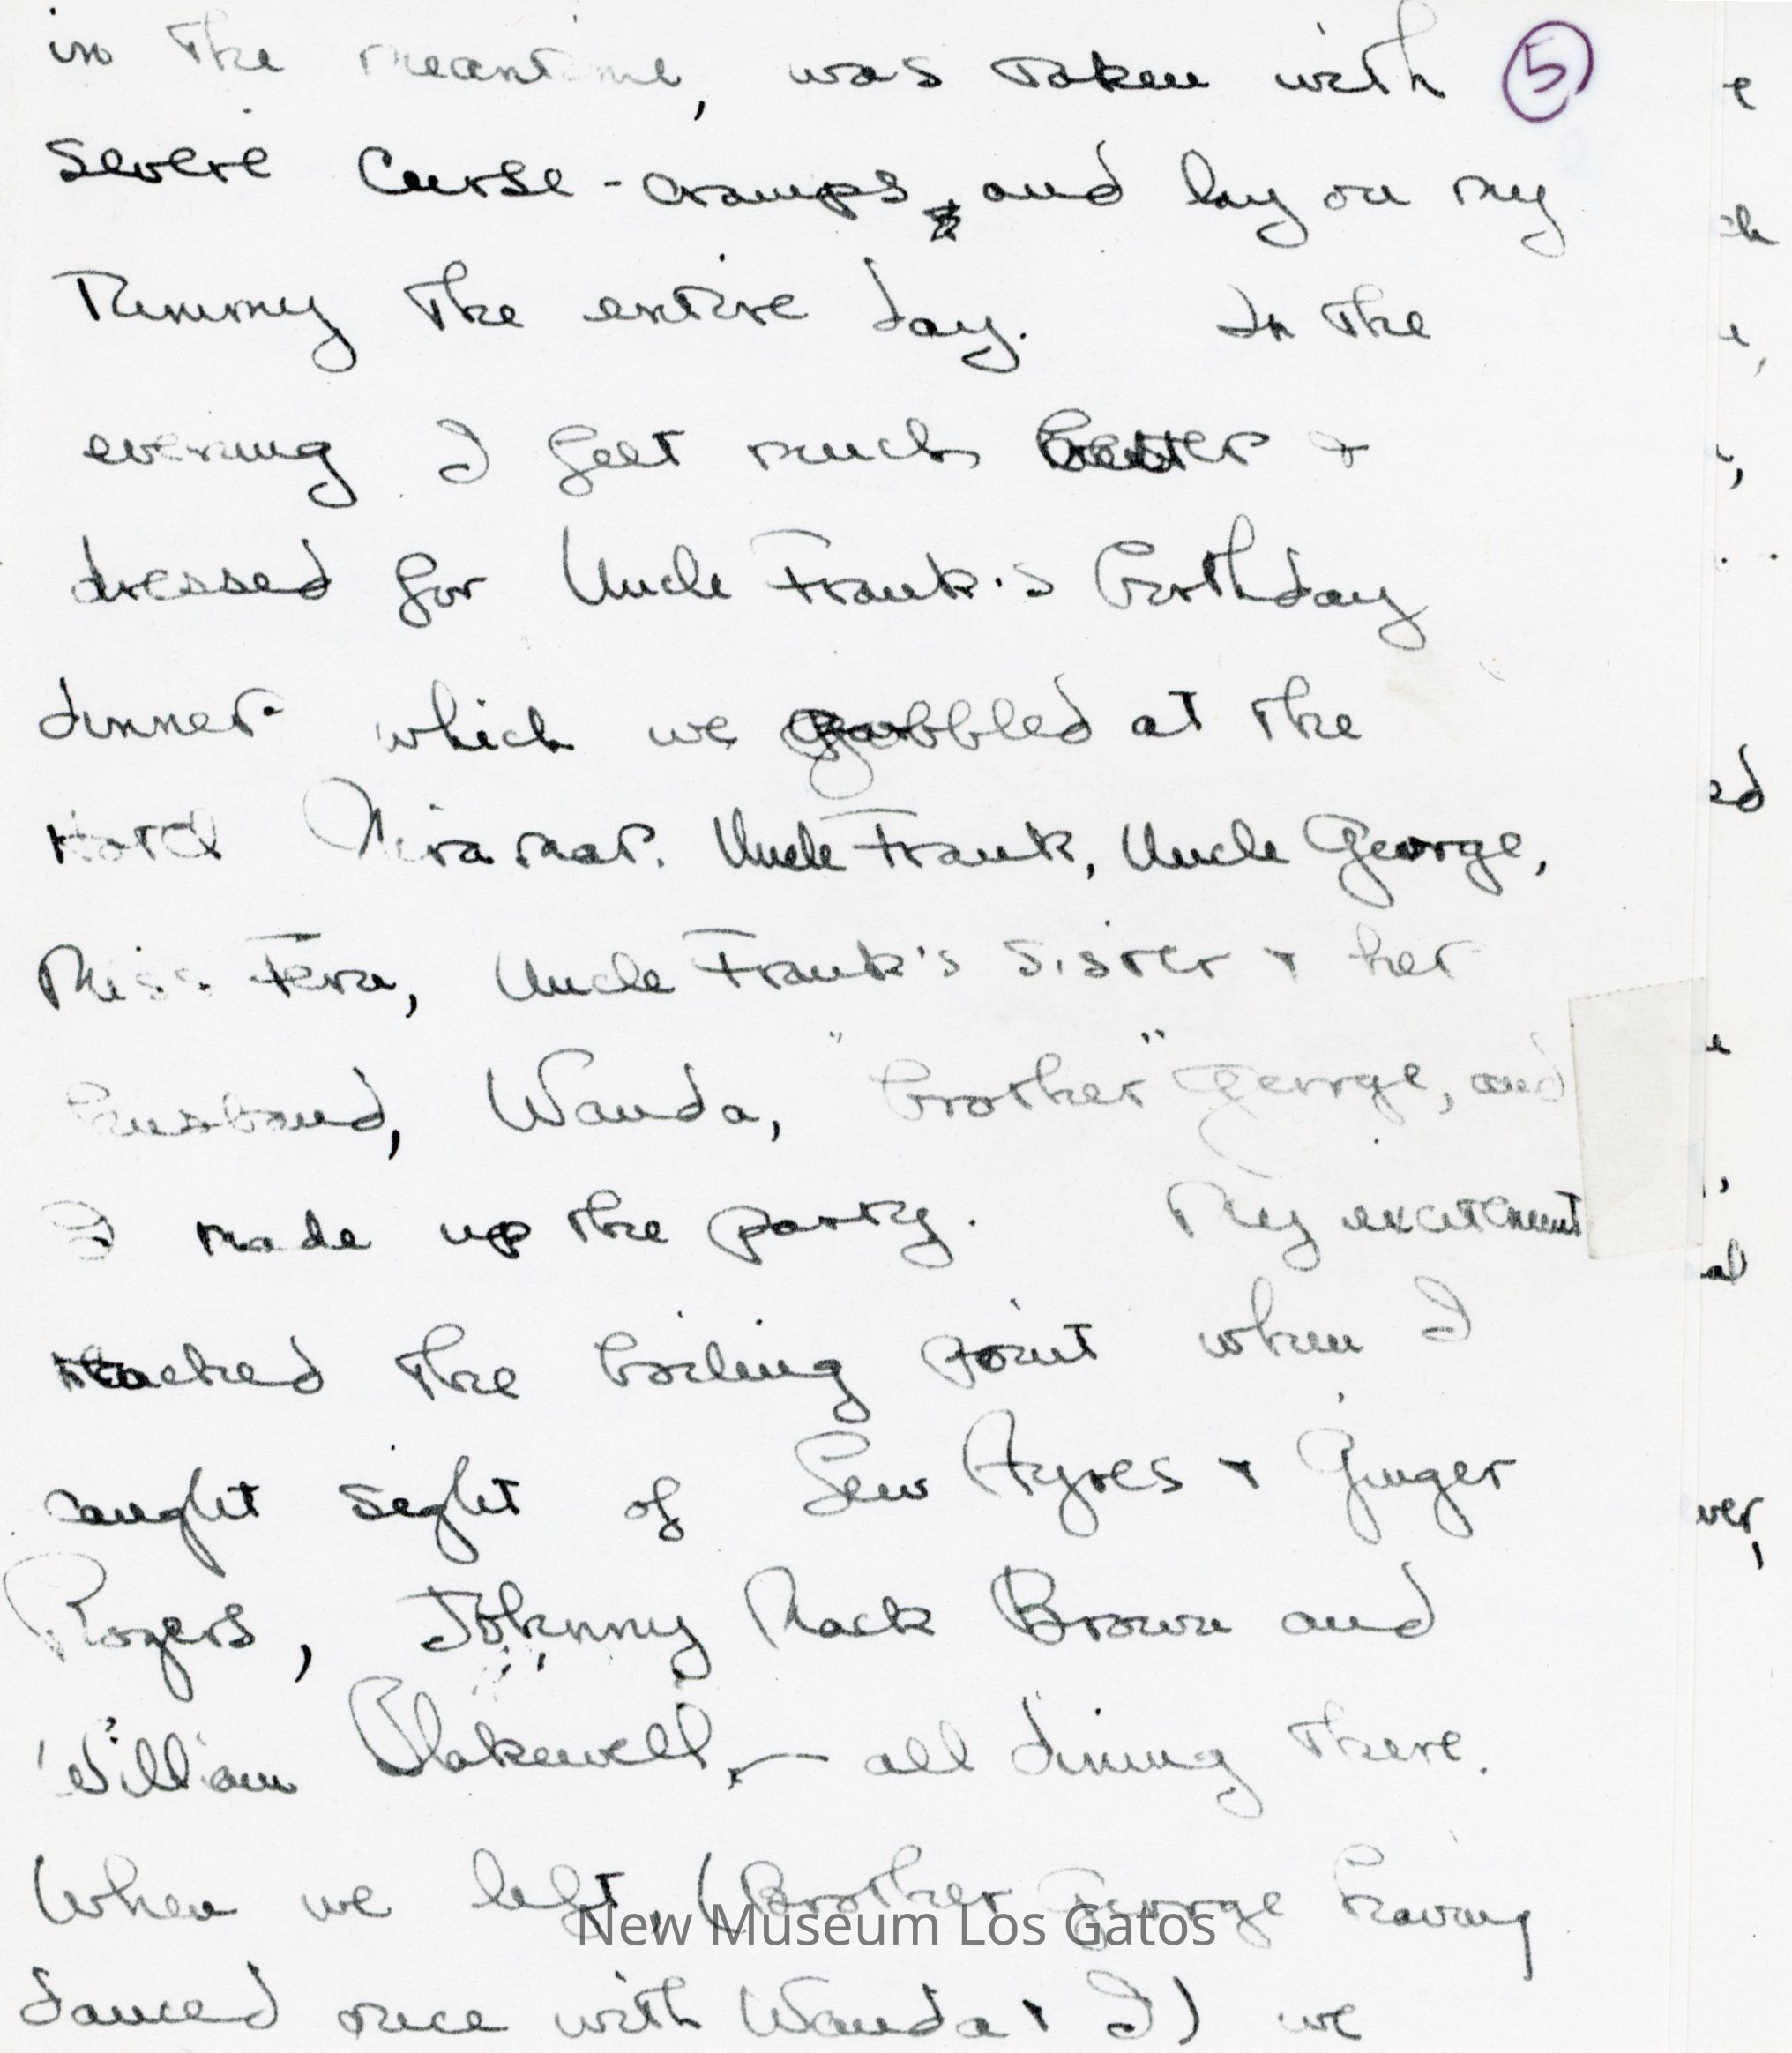 in the meantime, was taken with ⑤
severe curse-cramps, and lay on my
Tummy the entire day. In the
evening I felt much better &
dressed for Uncle Frank's birthday
dinner which we gobbled at the
Hotel Miramar. Uncle Frank, Uncle George,
Miss Fern, Uncle Frank's sister & her
husband, Wanda, "brother" George, and
I made up the party. My excitement
reached the boiling point when I
caught sight of Lew Ayres & Ginger
Rogers, Johnny Mack Brown and
William Blakewell, — all dining there.
When we left, (Brother George having
New Museum Los Gatos
danced once with Wanda & I) we